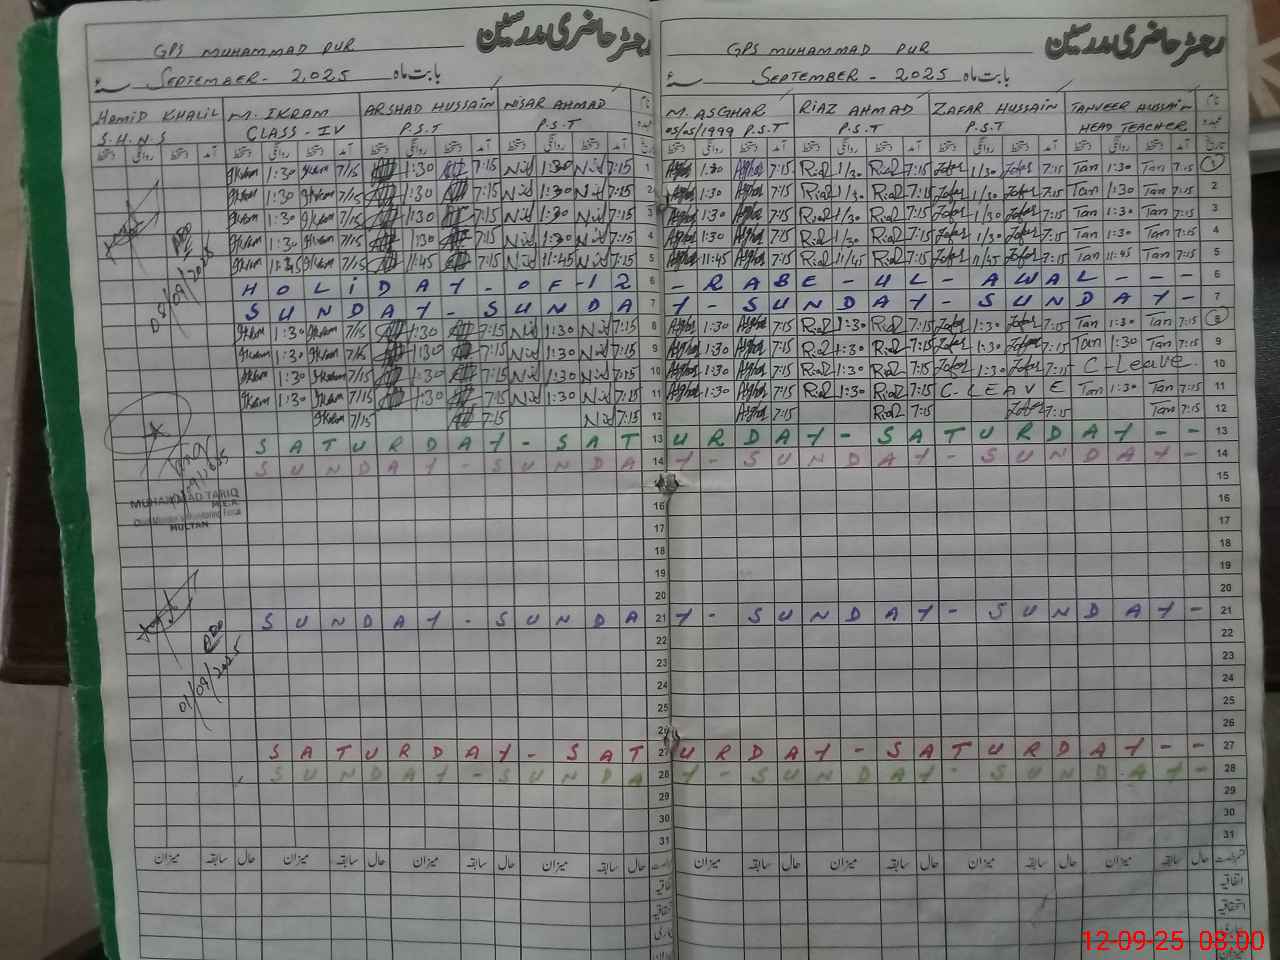 رجسٹر حاضری مدرسین
GPS MUHAMMAD PUR
بابت ماہ SEPTEMBER - 2025
HAMID KHALIL M. IKRAM ARSHAD HUSSAIN NISAR AHMAD
S.H.N.S CLASS - IV P.S.T P.S.T
Ikram 1:30 Ikram 7/15 1:30 7:15 Nis 1:30 Nis 7:15 1
Ikram 1:30 Ikram 7/15 1:30 7:15 Nis 1:30 Nis 7:15 2
Ikram 1:30 Ikram 7/15 1:30 7:15 Nis 1:30 Nis 7:15 3
Ikram 1:30 Ikram 7/15 1:30 7:15 Nis 1:30 Nis 7:15 4
Ikram 11:45 Ikram 7/15 11:45 7:15 Nis 11:45 Nis 7:15 5
HOLIDAY - OF - 12 6
SUNDAY - SUNDA 7
Ikram 1:30 Ikram 7/15 1:30 7:15 Nis 1:30 Nis 7:15 8
Ikram 1:30 Ikram 7/15 1:30 7:15 Nis 1:30 Nis 7:15 9
Ikram 1:30 Ikram 7/15 1:30 7:15 Nis 1:30 Nis 7:15 10
Ikram 1:30 Ikram 7/15 1:30 7:15 Nis 1:30 Nis 7:15 11
Ikram 7/15 7:15 Nis 7:15 12
SATURDAY - SAT 13
SUNDAY - SUNDA 14
16
17
18
19
20
SUNDAY - SUNDA 21
22
23
24
25
26
SATURDAY - SAT 27
SUNDAY - SUNDA 28
29
30
31
میزان سابقہ حال میزان سابقہ حال میزان سابقہ حال میزان سابقہ حال
08/09/2025
MUHAMMAD TARIQ
M.E.A
MULTAN
01/09/2025
رجسٹر حاضری مدرسین
GPS MUHAMMAD PUR
بابت ماہ SEPTEMBER - 2025
M. ASGHAR RIAZ AHMAD ZAFAR HUSSAIN TANVEER HUSSAIN
05/05/1999 P.S.T P.S.T P.S.T HEAD TEACHER
Asghar 1:30 Asghar 7:15 Riaz 1/30 Riaz 7:15 Zafar 1/30 Zafar 7:15 Tan 1:30 Tan 7:15 1
Asghar 1:30 Asghar 7:15 Riaz 1/30 Riaz 7:15 Zafar 1/30 Zafar 7:15 Tan 1:30 Tan 7:15 2
Asghar 1:30 Asghar 7:15 Riaz 1/30 Riaz 7:15 Zafar 1/30 Zafar 7:15 Tan 1:30 Tan 7:15 3
Asghar 1:30 Asghar 7:15 Riaz 1/30 Riaz 7:15 Zafar 1/30 Zafar 7:15 Tan 1:30 Tan 7:15 4
Asghar 11:45 Asghar 7:15 Riaz 11/45 Riaz 7:15 Zafar 11/45 Zafar 7:15 Tan 11:45 Tan 7:15 5
- RABE - UL - AWAL - - - 6
Y - SUNDAY - SUNDAY - 7
Asghar 1:30 Asghar 7:15 Riaz 1:30 Riaz 7:15 Zafar 1:30 Zafar 7:15 Tan 1:30 Tan 7:15 8
Asghar 1:30 Asghar 7:15 Riaz 1:30 Riaz 7:15 Zafar 1:30 Zafar 7:15 Tan 1:30 Tan 7:15 9
Asghar 1:30 Asghar 7:15 Riaz 1:30 Riaz 7:15 Zafar 1:30 Zafar 7:15 C-Leave. 10
Asghar 1:30 Asghar 7:15 Riaz 1:30 Riaz 7:15 C-LEAVE Tan 1:30 Tan 7:15 11
Asghar 7:15 Riaz 7:15 Zafar 7:15 Tan 7:15 12
URDAY - SATURDAY - - 13
Y - SUNDAY - SUNDAY - 14
15
16
17
18
19
20
Y - SUNDAY - SUNDAY - 21
22
23
24
25
26
URDAY - SATURDAY - - 27
Y - SUNDAY - SUNDAY - 28
29
30
31
میزان سابقہ حال میزان سابقہ حال میزان سابقہ حال میزان سابقہ حال
اتفاقیہ
12-09-25 08:00